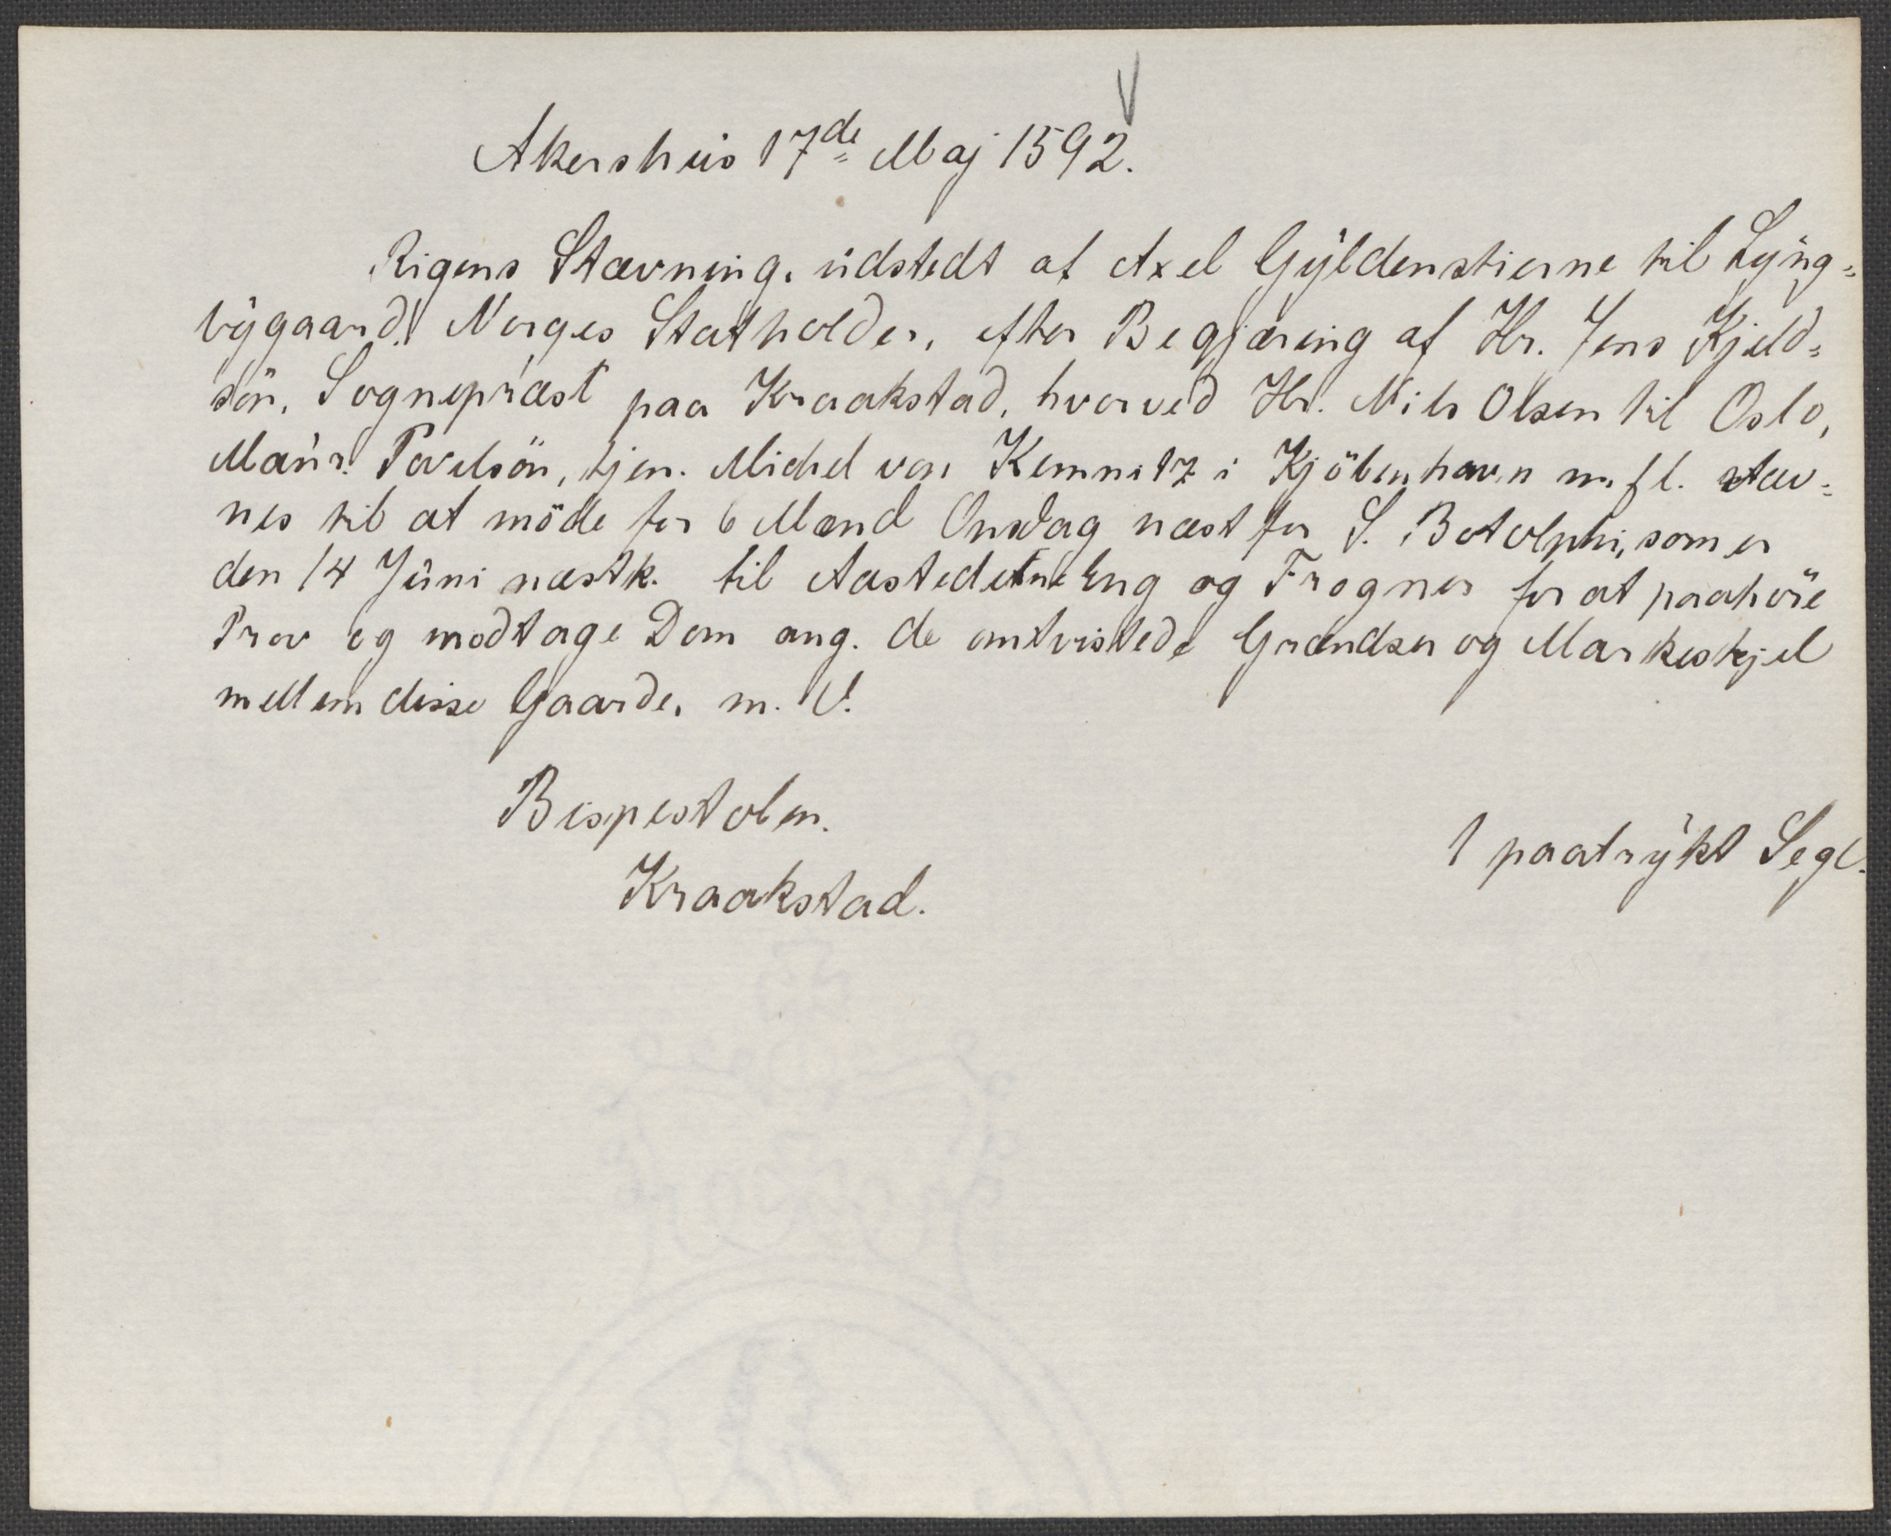 Akershus 17de Maj 1592.
Rigens Stævning, udstedt af Axel Gyldenstierne til Lyng=
bygaard, Norges Statholder, efter Begjæring af Hr. Jens Kjeld=
sön, Sogneprest paa Kraakstad, hvorved Hr. Nils Olsen til Oslo,
Povelsön, tjen. Michel von Kemnitz i Kjöbenhavn m. fl. stæv=
nes til at möde for 6 Mænd Onsdag næst for S. Botolphi, som er
den 14 Juni næstk. til Aastederne Eng og Frogner for at paahöre
Prov og modtage Dom ang. de omtvistede Grændser og Markeskjel
mellem disse Gaarde. m. V.
Bispestolen.
Kraakstad.
1 paatrykt Segl.